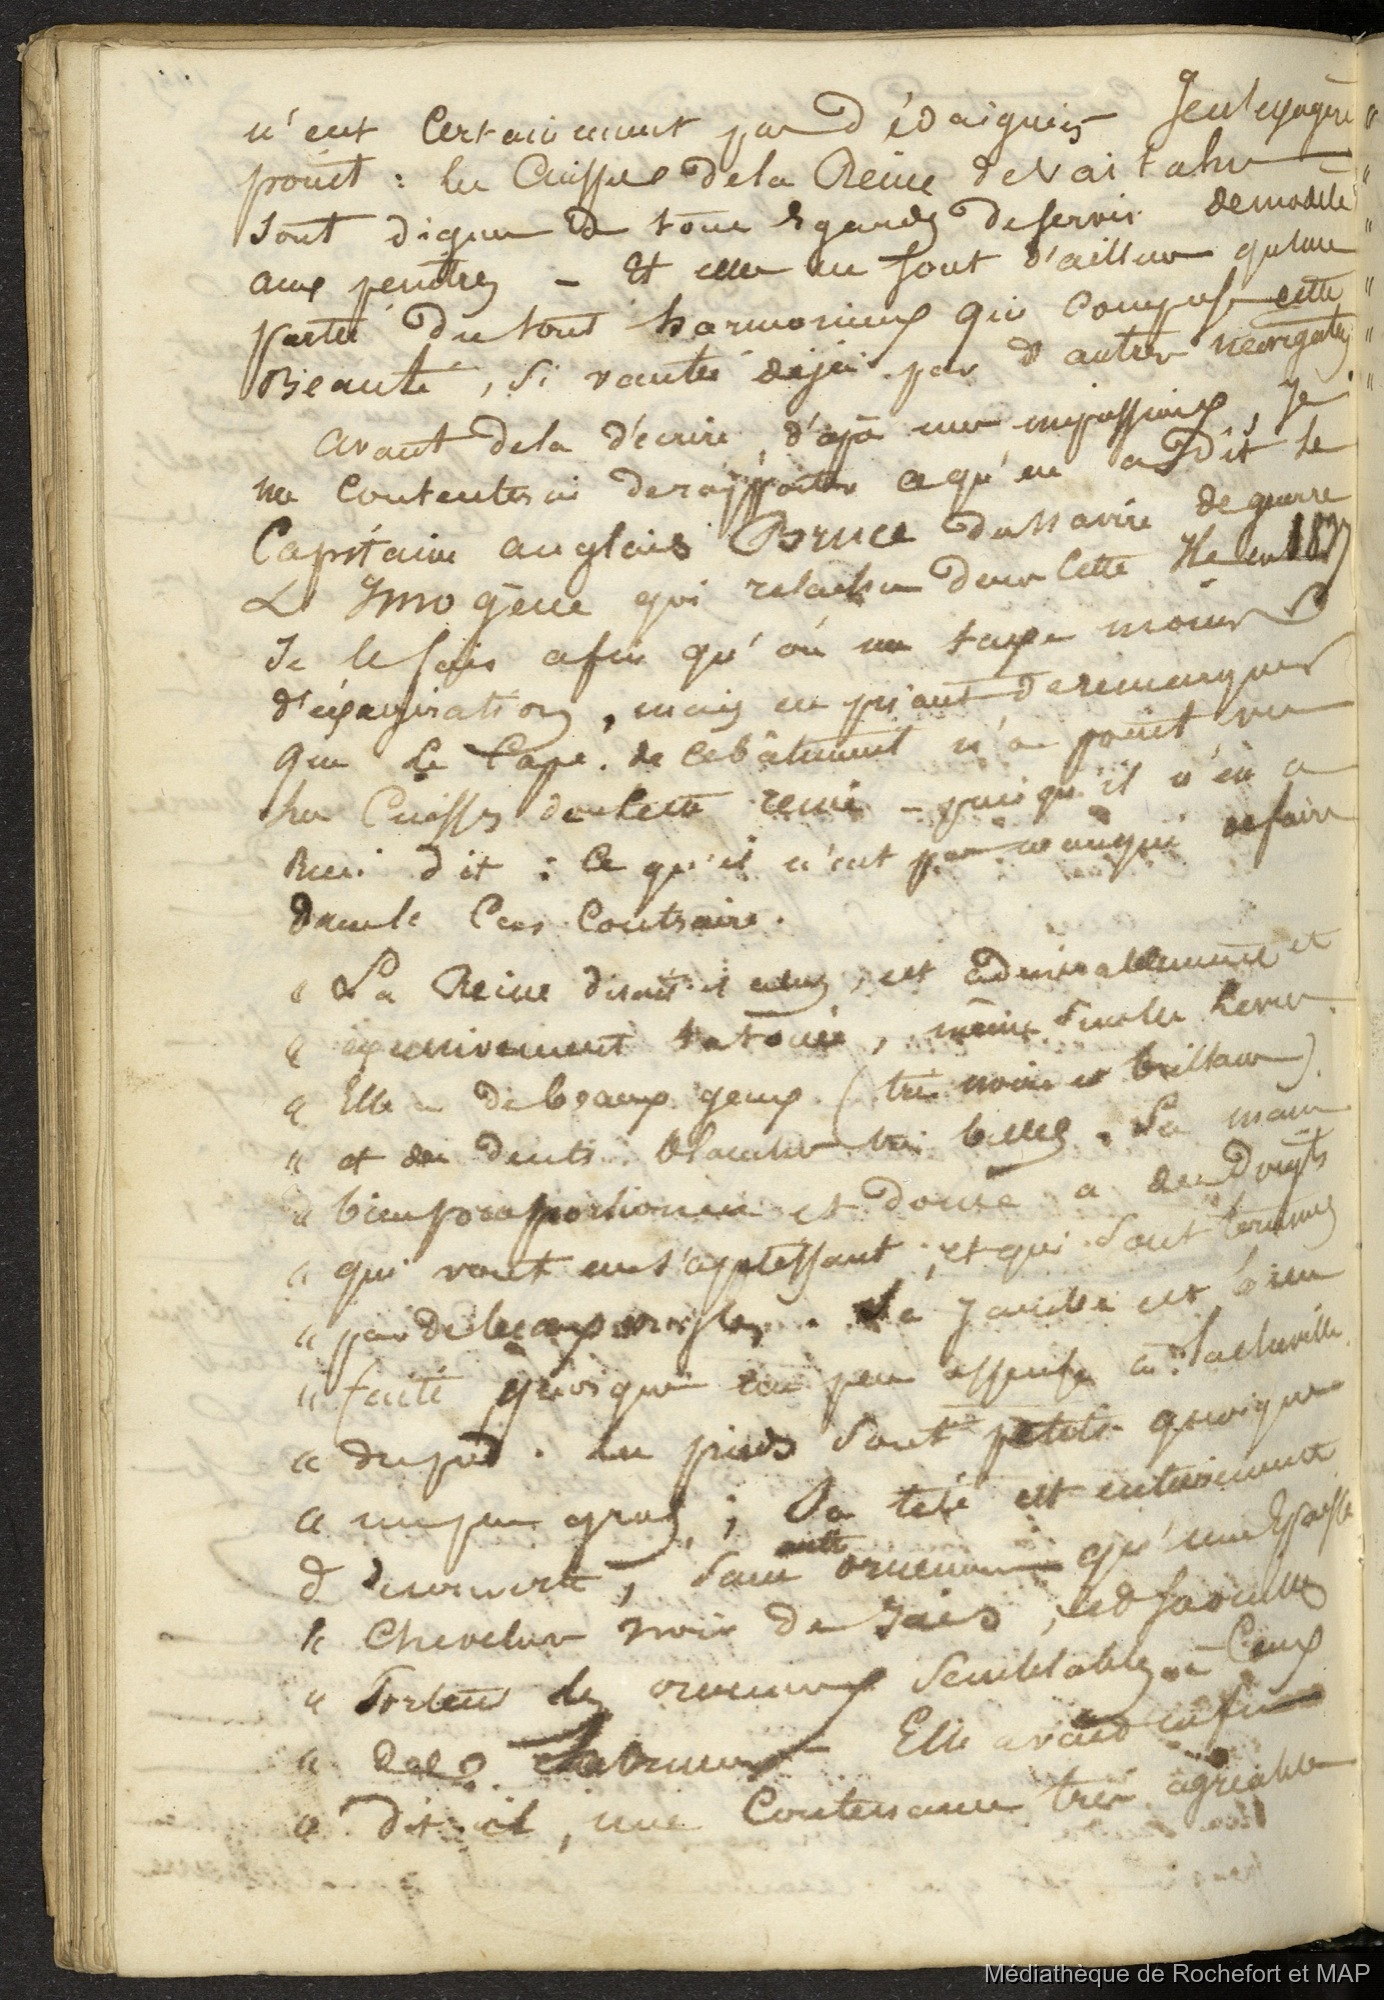 n'eut Certainement pas dédaignés. J'en'exagère
point : les Cuisses de la Reine de Vaitahu
sont dignes de tous égards de servir de modèle
aux peintres - Et elles ne sont d'ailleurs qu'une
partie du tout harmonieux qui compose cette
Beauté, si vantée déjà par d'autres navigateurs
avant de la décrire, d'après mes impressions, Je
me contenterai de rapporter ce qu'en a dit le
Capitaine anglais Bruce du Navire de guerre
L'Imogène qui relacha dans cette Ile en 1837
Je le fais afin qu'on me taxe moins
d'éxagération, mais en priant de remarquer
que le Cape. de ce bâtiment n'a point vu
les Cuisses de cette reine - puisqu'il n'en a
rien dit : Ce qu'il n'eut pas manqué de faire
dans le Cas Contraire.
" La Reine disait-il est admirablement et
" excessivement tatouée, même sur les lèvres.
" Elle a de beaux yeux (très noirs et brillans)
" et des dents blanches très belles. Sa main
" bien proportionnée et douce a des doigts
" qui vont en s'applatissant, et qui sont terminés
" par de beaux ongles. Sa jambe est bien
" faite quoique un peu épaisse à la cheville
" du pied. les pieds sont petits quoique
" un peu gras ; Sa tête est entièrement
" découverte, sans autre ornement qu'une épaisse
" Chevelure noire de Jais, les oreilles
" portent des ornements semblables à Ceux
" des hommes Elle avait enfin
" dit-il, une Contenance très agréable
Médiathèque de Rochefort et MAP